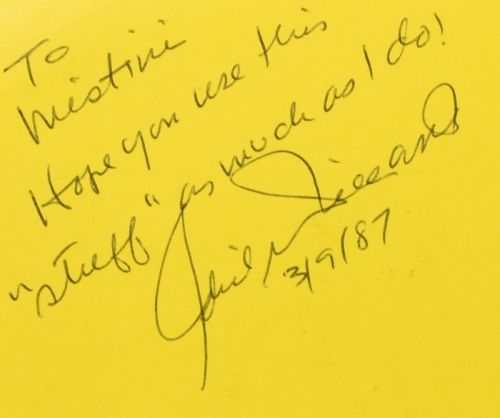 To
Mistini
Hope you use this
"stuff" as much as I do!
3/9/87